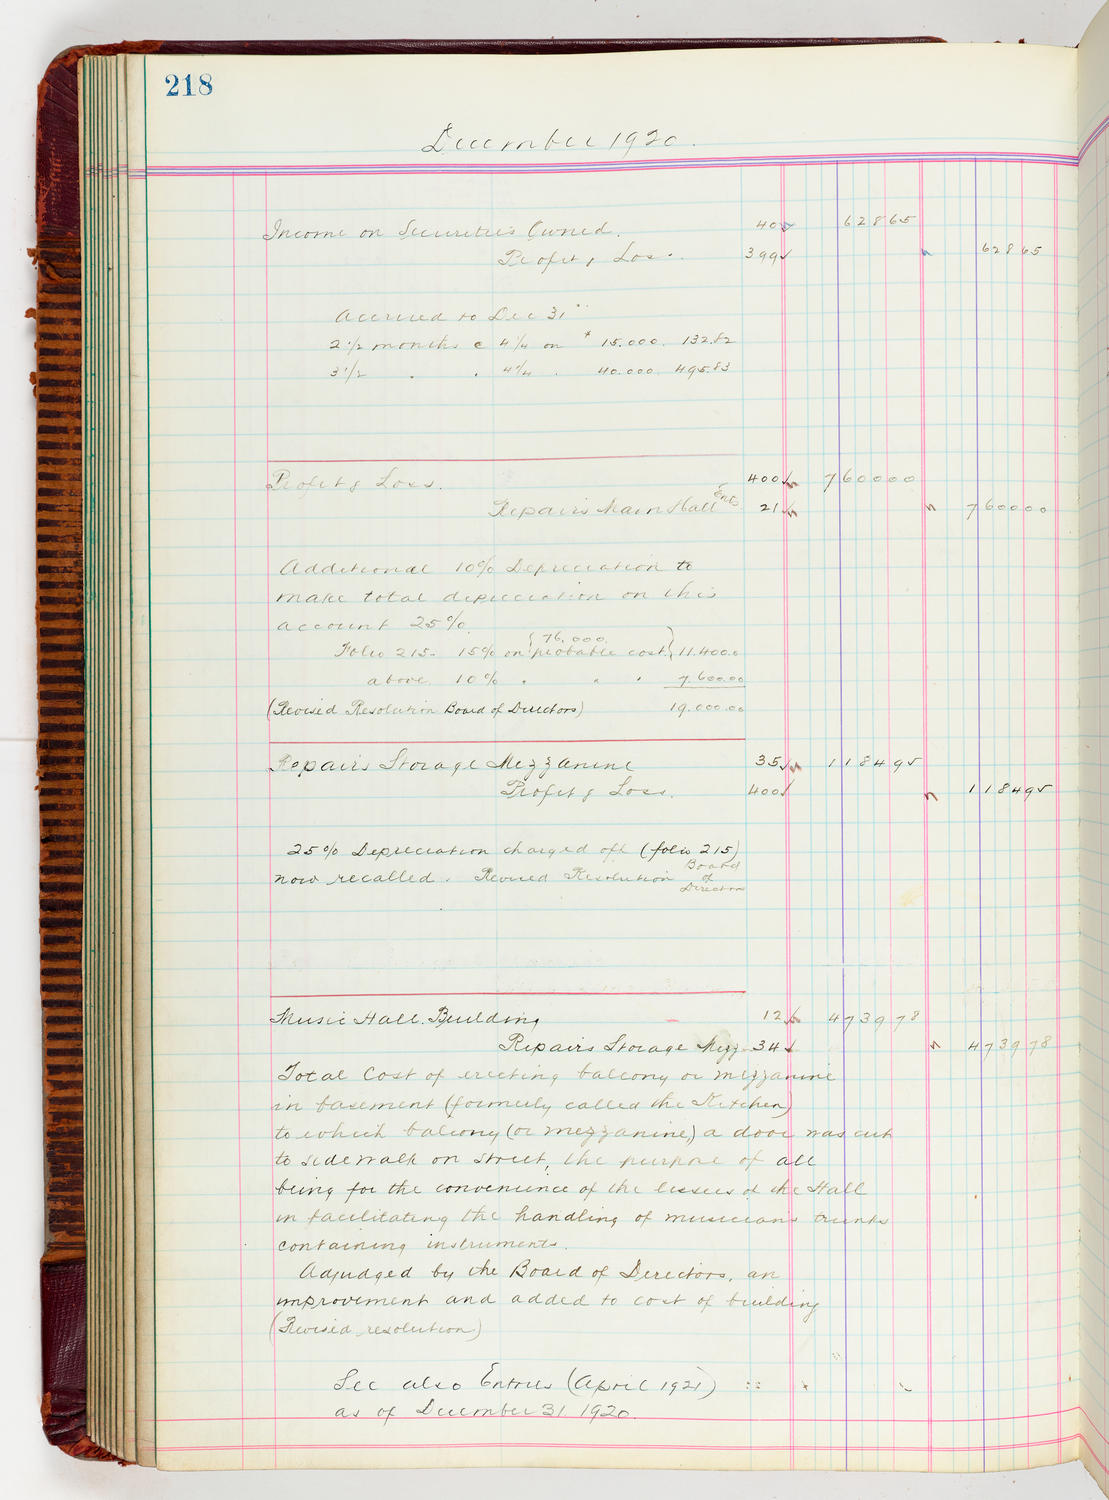 218
December 1920.
Income on Securities Owned. 40 628 65
Profit & Loss. 399 628 65
Accrued to Dec 31"
2 1/2 months @ 4 1/4 on $ 15.000. 132.82
3 1/2 " " 4 1/4 " 40.000. 495.83
Profit & Loss. 400 7600 00
Repairs Main Hall Ents 21 7600 00
Additional 10% Depreciation to
make total depreciation on this
account 25%.
{76,000.}
Folio 215- 15% on probable cost 11.400.0
above 10% " " " 7.600.00
(Revised Resolution Board of Directors) 19.000.00
Repairs Storage Mezzanine 35 1184 95
Profit & Loss. 400 1184 95
25% Depreciation charged off (folio 215)
now recalled. Revised Resolution Board of Directors
Music Hall. Building 12 4739 78
Repairs Storage Mezz 34 4739 78
Total Cost of erecting balcony or mezzanine
in basement (formerly called the Kitchen)
to which balcony (or mezzanine,) a door was cut
to sidewalk on street, the purpose of all
being for the convenience of the lessees of the Hall
in facilitating the handling of musicians trunks
containing instruments.
Adjudged by the Board of Directors, an
improvement and added to cost of building
(Revised resolution)
See also Entries (April 1921)
as of December 31. 1920.